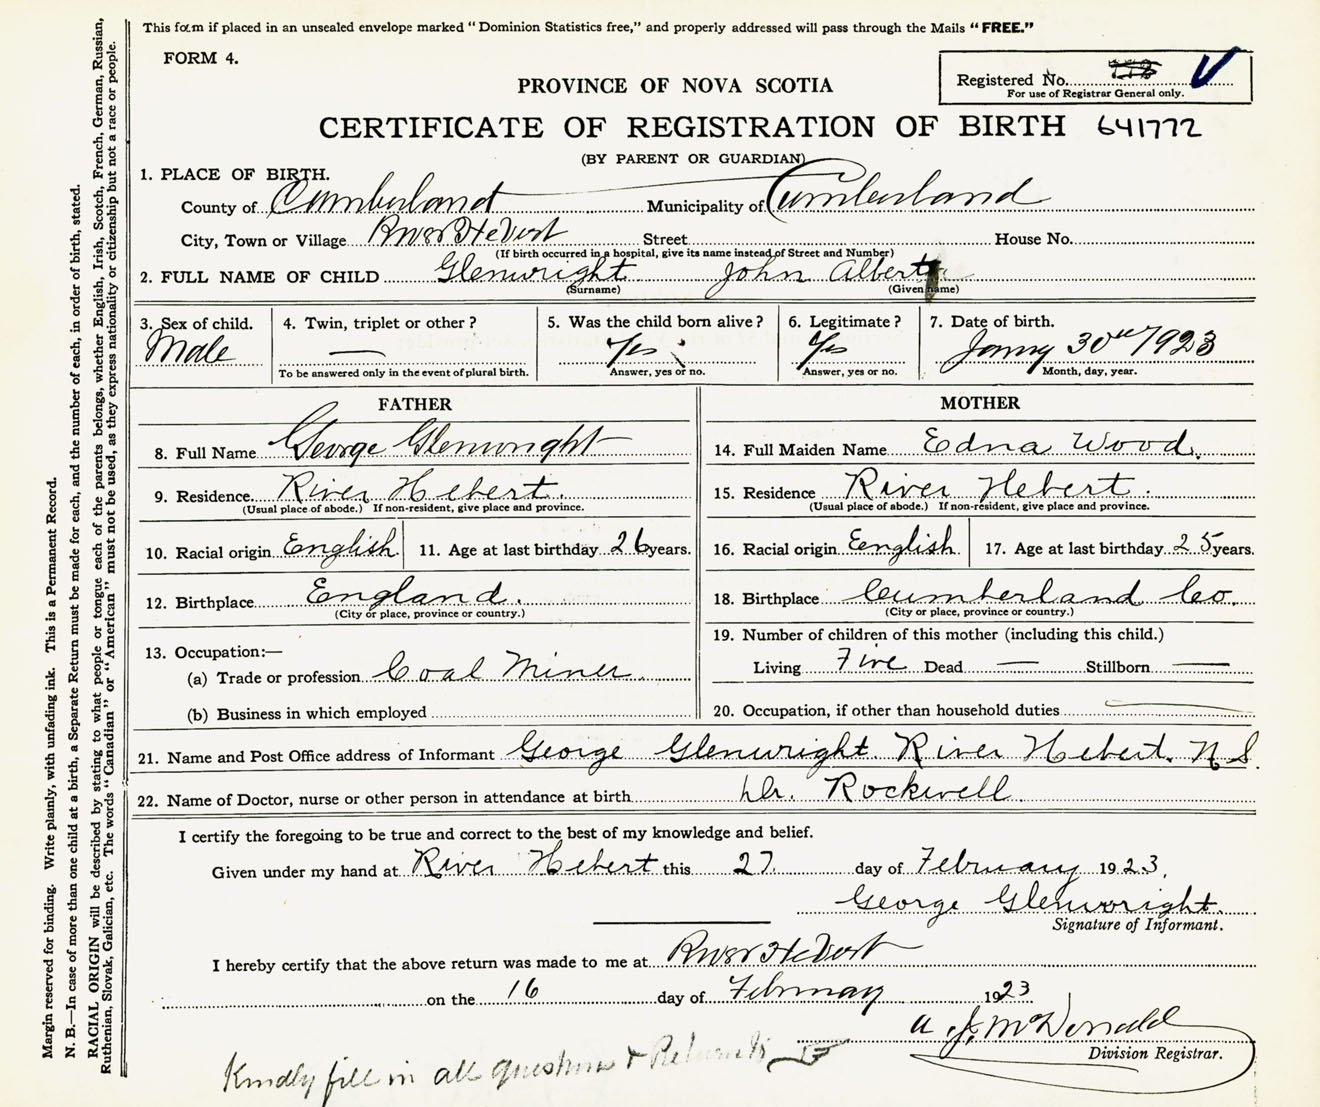 This form if placed in an unsealed envelope marked "Dominion Statistics free," and properly addressed will pass through the Mails "FREE."
FORM 4.
Registered No.
For use of Registrar General only.
PROVINCE OF NOVA SCOTIA
CERTIFICATE OF REGISTRATION OF BIRTH 641772
(BY PARENT OR GUARDIAN)
1. PLACE OF BIRTH.
County of Cumberland Municipality of Cumberland
City, Town or Village River Hebert Street House No.
(If birth occurred in a hospital, give its name instead of Street and Number)
2. FULL NAME OF CHILD Glenwright John Albert
(Surname) (Given name)
3. Sex of child. Male
4. Twin, triplet or other? —
To be answered only in the event of plural birth.
5. Was the child born alive? Yes
Answer, yes or no.
6. Legitimate? Yes
Answer, yes or no.
7. Date of birth. Janry 30th/1923
Month, day, year.
FATHER
8. Full Name George Glenwright
9. Residence River Hebert.
(Usual place of abode.) If non-resident, give place and province.
10. Racial origin English 11. Age at last birthday 26 years.
12. Birthplace England.
(City or place, province or country.)
13. Occupation:—
(a) Trade or profession Coal Miner
(b) Business in which employed
MOTHER
14. Full Maiden Name Edna Wood.
15. Residence River Hebert.
(Usual place of abode.) If non-resident, give place and province.
16. Racial origin English 17. Age at last birthday 25 years.
18. Birthplace Cumberland Co.
(City or place, province or country.)
19. Number of children of this mother (including this child.)
Living Five Dead — Stillborn —
20. Occupation, if other than household duties
21. Name and Post Office address of Informant George Glenwright. River Hebert. N.S.
22. Name of Doctor, nurse or other person in attendance at birth Dr. Rockwell.
I certify the foregoing to be true and correct to the best of my knowledge and belief.
Given under my hand at River Hebert this 27. day of February 1923.
George Glenwright.
Signature of Informant.
I hereby certify that the above return was made to me at River Hebert
on the 16 day of February 1923
A. J. McDonald
Division Registrar.
Kindly fill in all questions & Return to
Margin reserved for binding. Write plainly, with unfading ink. This is a Permanent Record.
N. B.—In case of more than one child at a birth, a Separate Return must be made for each, and the number of each, in order of birth, stated.
RACIAL ORIGIN will be described by stating to what people or tongue each of the parents belongs, whether English, Irish, Scotch, French, German, Russian,
Ruthenian, Slovak, Galician, etc. The words "Canadian" or "American" must not be used, as they express nationality or citizenship but not a race or people.